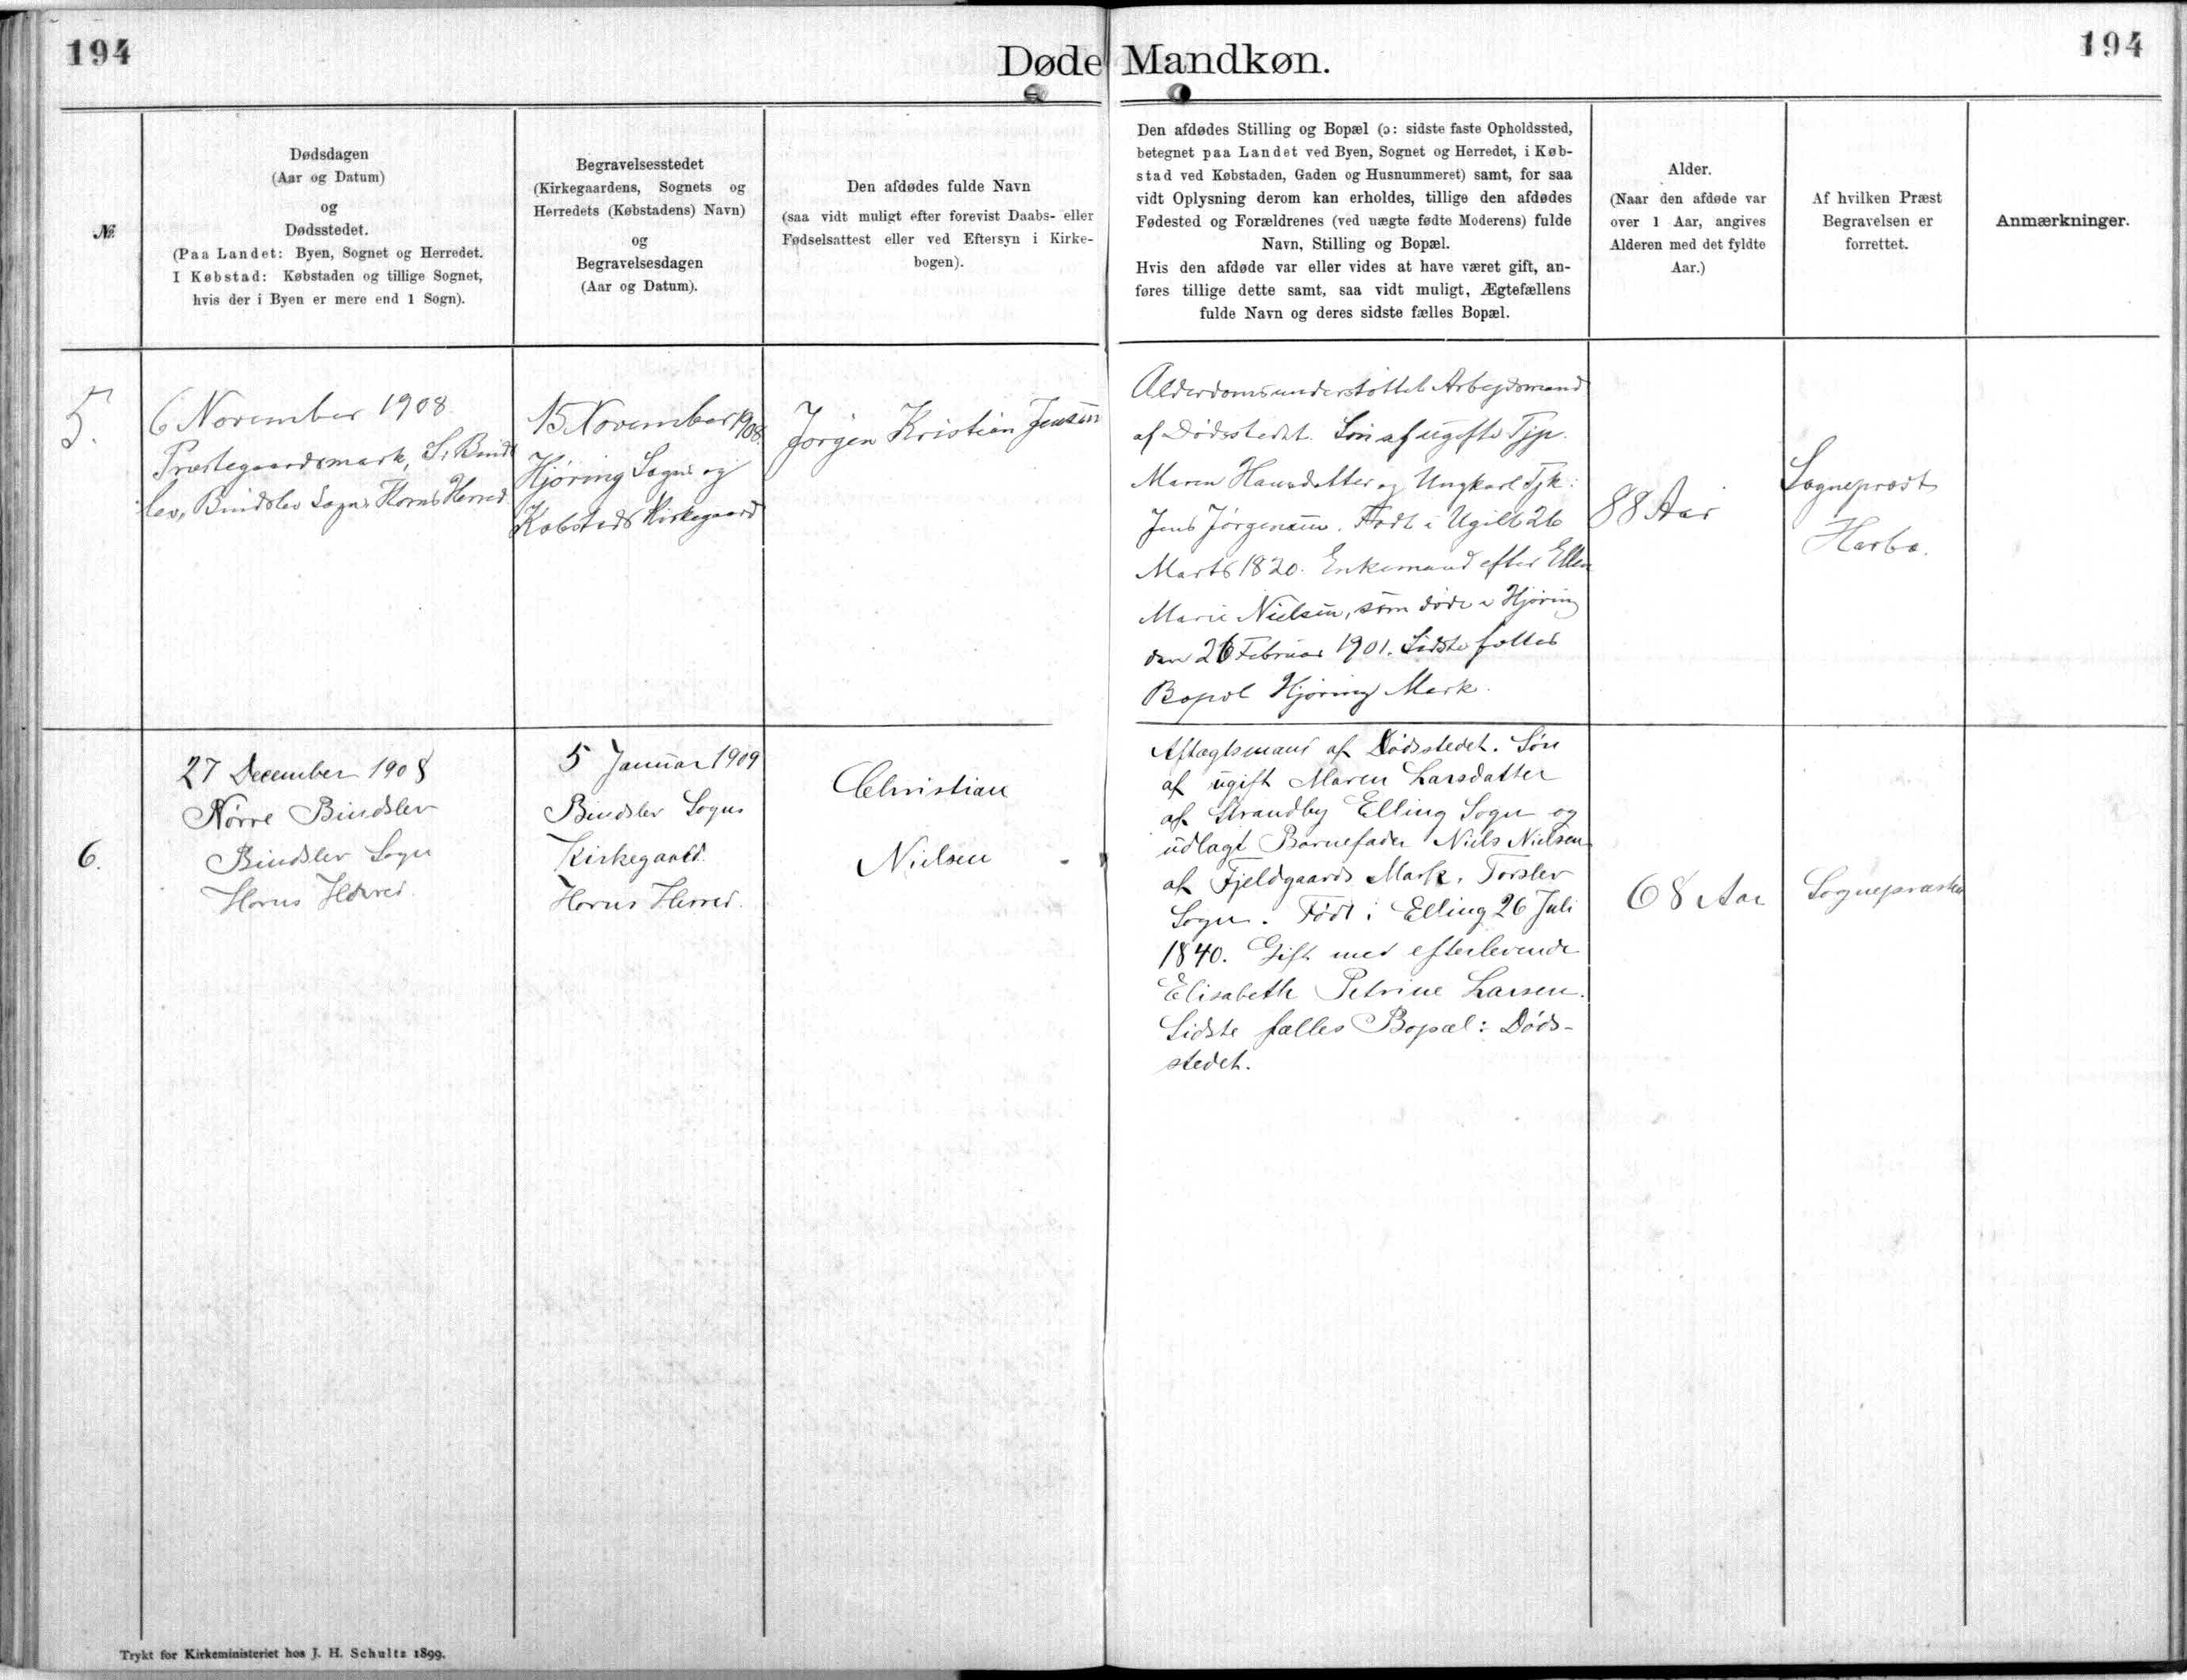 194
Døde Mandkøn.
194
№
Dødsdagen
(Aar og Datum)
og
Dødsstedet.
(Paa Landet: Byen, Sognet og Herredet.
I Købstad: Købstaden og tillige Sognet,
hvis der i Byen er mere end 1 Sogn).
Begravelsesstedet
(Kirkegaardens, Sognets og
Herredets (Købstadens) Navn)
og
Begravelsesdagen
(Aar og Datum).
Den afdødes fulde Navn
(saa vidt muligt efter forevist Daabs- eller
Fødselsattest eller ved Eftersyn i Kirke-
bogen).
Den afdødes Stilling og Bopæl (ɔ: sidste faste Opholdssted,
betegnet paa Landet ved Byen, Sognet og Herredet, i Køb-
stad ved Købstaden, Gaden og Husnummeret) samt, for saa
vidt Oplysning derom kan erholdes, tillige den afdødes
Fødested og Forældrenes (ved uægte fødte Moderens) fulde
Navn, Stilling og Bopæl.
Hvis den afdøde var eller vides at have været gift, an-
føres tillige dette samt, saa vidt muligt, Ægtefællens
fulde Navn og deres sidste fælles Bopæl.
Alder.
(Naar den afdøde var
over 1 Aar, angives
Alderen med det fyldte
Aar.)
Af hvilken Præst
Begravelsen er
forrettet.
Anmærkninger.
5.
6 November 1908
Præstegaardsmark, S. Bind
lev, Bindslev Sogn, Horns Herred
15 November 1908.
Hjøring Sogns og
Købsteds Kirkegaard
Jørgen Kristian Jensen
Alderdomsunderstøttet Arbejdsmand
af Dødsstedet. Søn af ugifte Tjp.
Maren Hansdatter og Ungkarl Tjk:
Jens Jørgensen. Født i Ugilt 26
Marts 1820. Enkemand efter Ellen
Marie Nielsen, som døde i Hjøring
den 26 Februar 1901. Sidste fælles
Bopæl Hjøring Mark.
88 Aar
Sognepræst
Harbo.
6.
27 December 1908
Nørre Bindslev
Bindslev Sogn
Horns Herred.
5 Januar 1909
Bindslev Sogns
Kirkegaard.
Horns Herred.
Christian
Nielsen
Aftægtsmand af Dødsstedet. Søn
af ugift Maren Larsdatter
af Strandby Elling Sogn og
udlagt Barnefader Niels Nielsen
af Fjeldgaards Mark, Torslev
Sogn. Født i Elling 26 Juli
1840. Gift med efterlevende
Elisabeth Petrine Larsen.
Sidste fælles Bopæl: Døds-
stedet.
68 Aar
Sognepræsten
Trykt for Kirkeministeriet hos J. H. Schultz 1899.